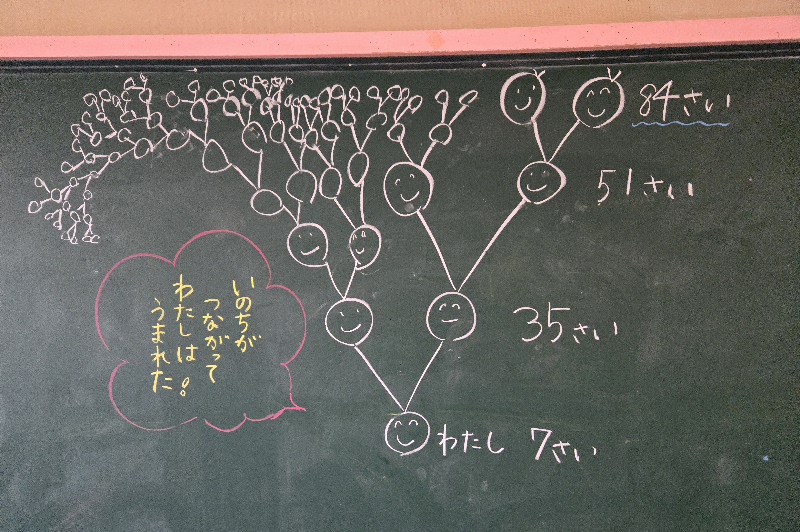 84さい
51さい
35さい
わたし 7さい
いのちが
つながって
わたしは
うまれた。